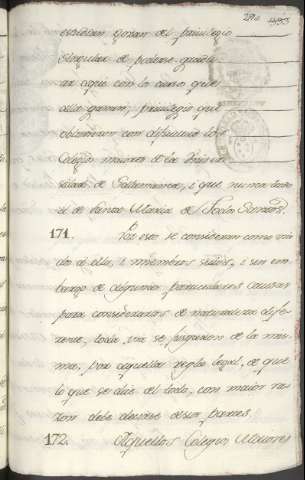 residan gozan del privilegio
singular de poderse gradu-
ar aqui con lo curso que
alla ganan, privilegio que
obtuvieron con dificultad los
Colegios maiores de la Univer-
sidad de Salamanca, i que nunca tuvo
el de Santa Maria de Jesus
171. Por eso se consideran como
de ella, i miembros suios, i sin em-
bargo de algunas particulares causas
para considerarlas de naturaleza dife-
rente, toda via se juzgaron de la mis-
ma, Por aquella regla legal, de que
lo que se dice del todo, con maior ra-
zon debe decirse de sus partes.
172. Aquellos Colegios Maiores